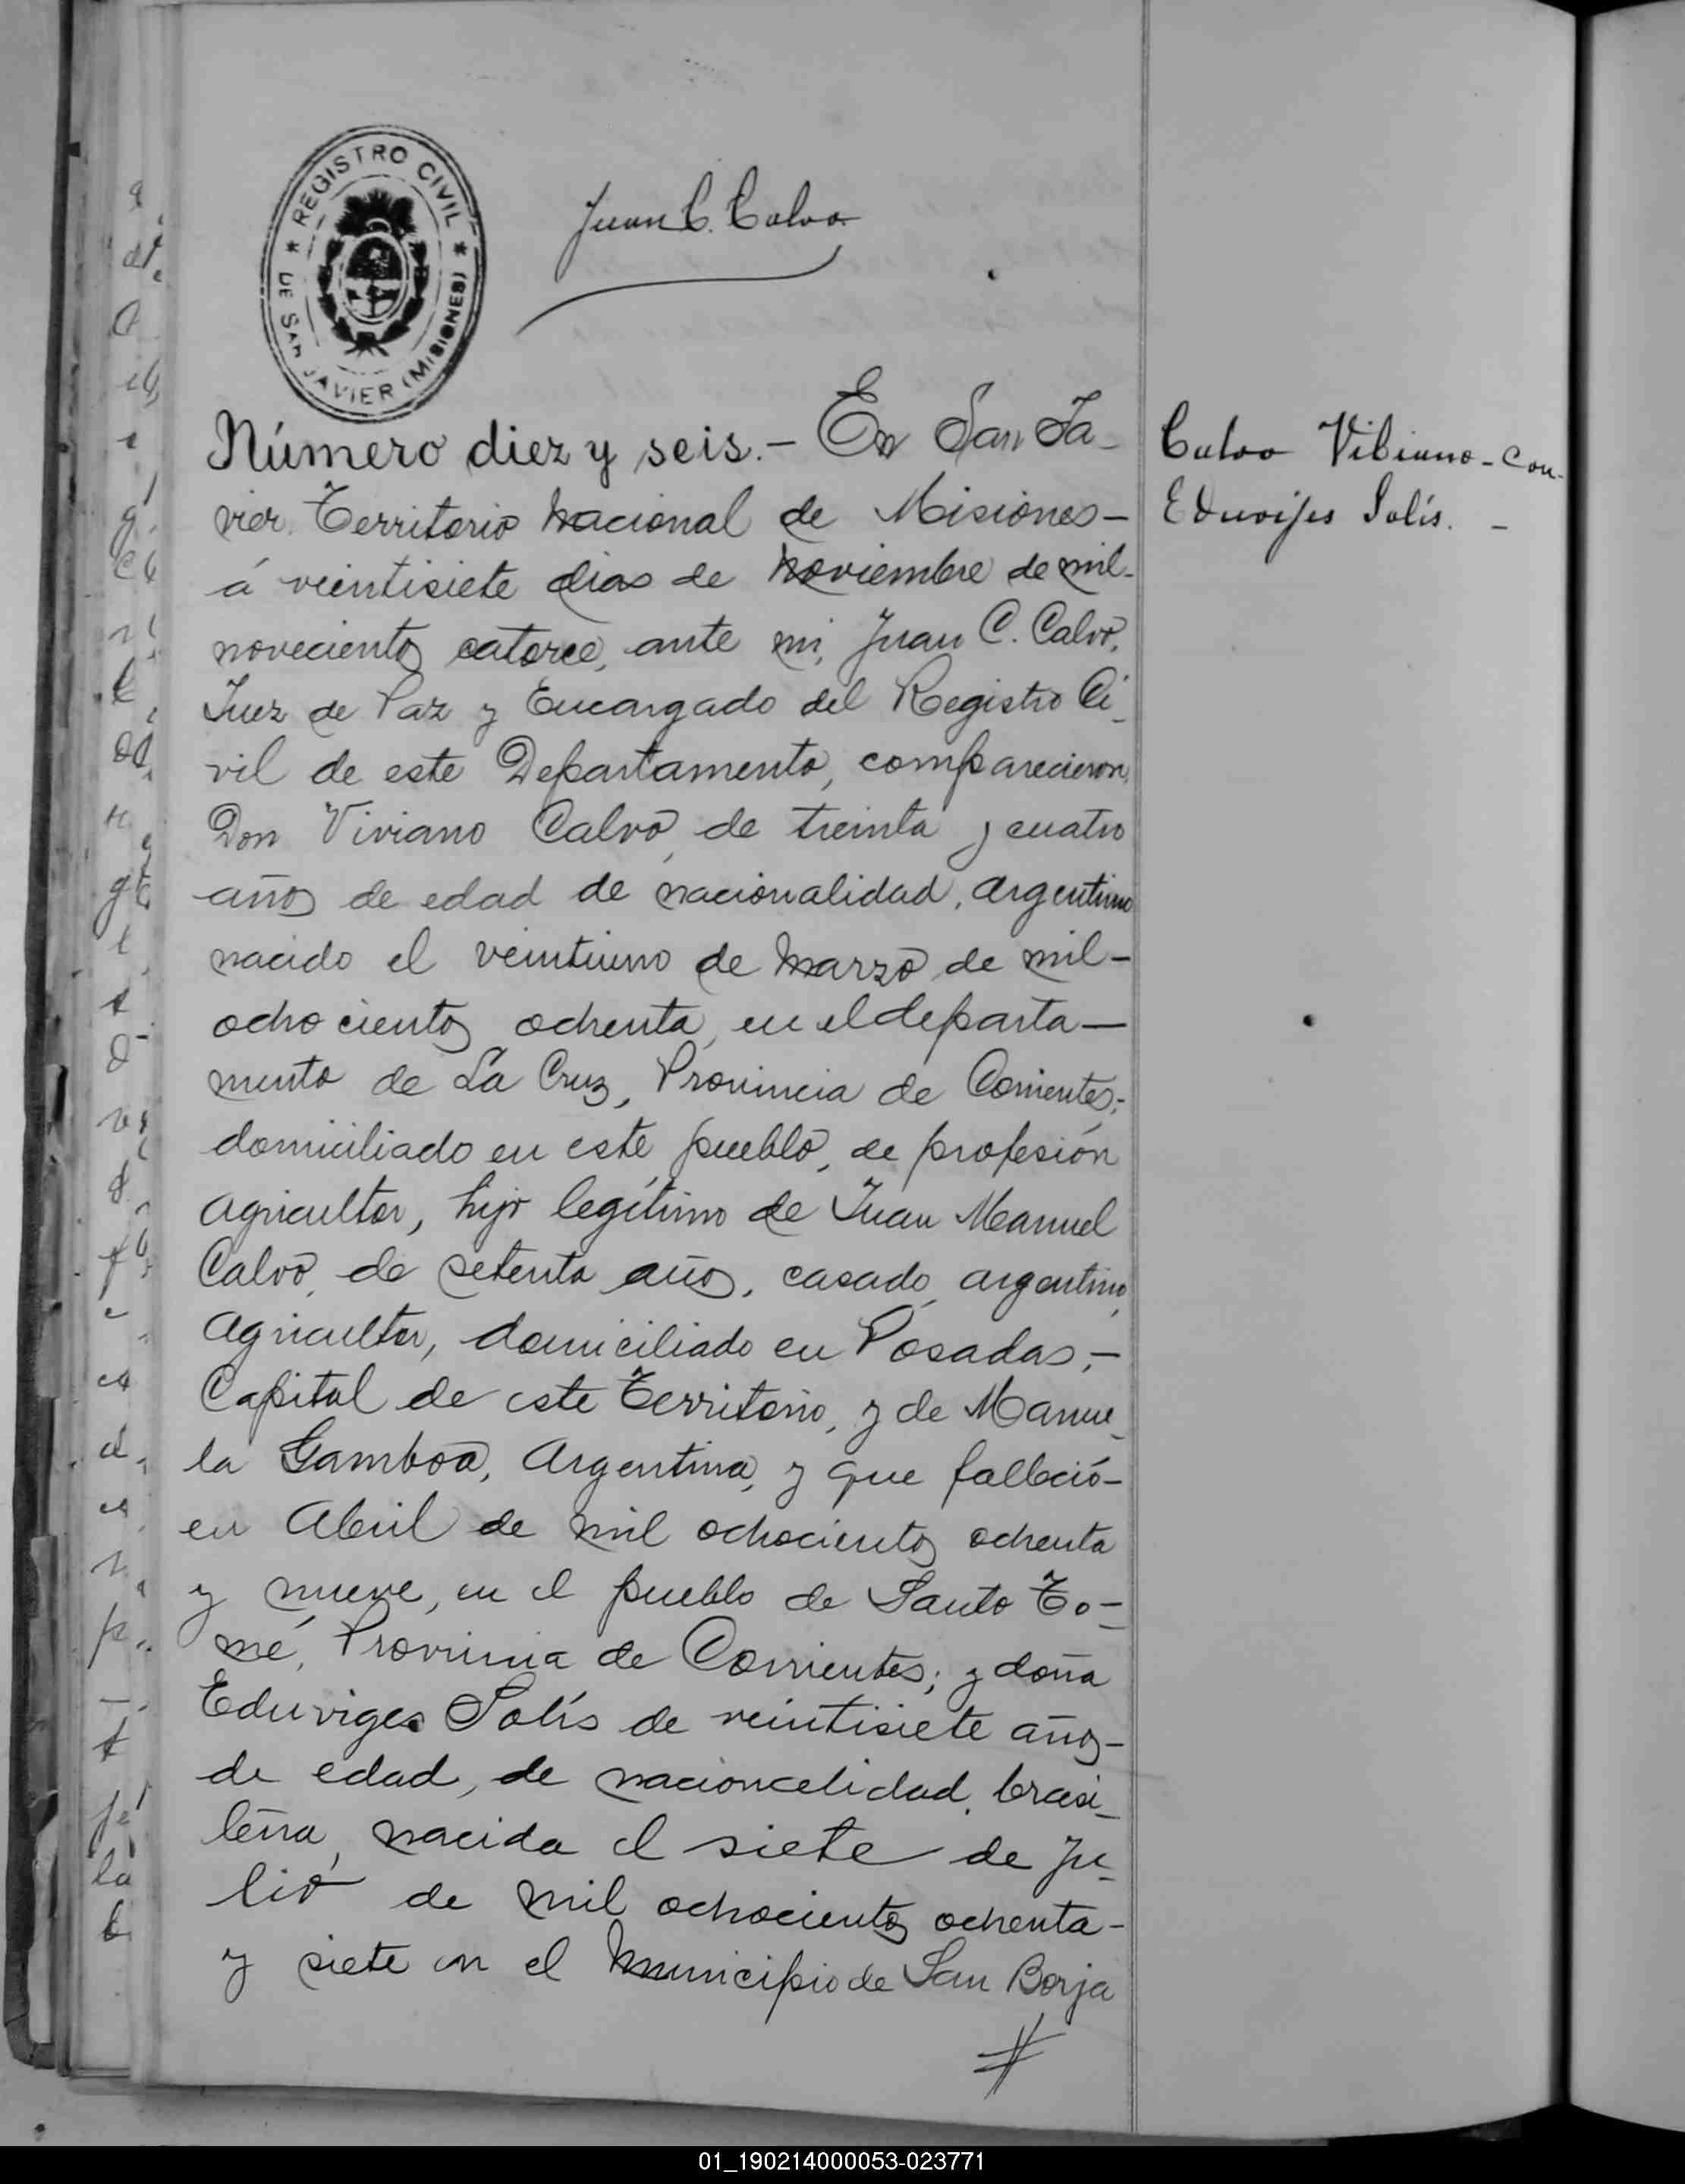 REGISTRO CIVIL
DE SAN JAVIER (MISIONES)
Juan C. Calvo
Número diez y seis.- En San Ja-
vier Territorio Nacional de Misiones-
á veintisiete dias de Noviembre de mil-
novecientos catorce, ante mi, Juan C. Calvo,
Juez de Paz y Encargado del Registro Ci-
vil de este Departamento, comparecieron,
Don Viviano Calvo, de treinta y cuatro
años de edad de nacionalidad, argentino
nacido el veintiuno de Marzo de mil-
ochocientos ochenta, en el departa-
mento de La Cruz, Provincia de Corrientes;
domiciliado en este pueblo, de profesión
agricultor, hijo legítimo de Juan Manuel
Calvo, de setenta años, casado, argentino,
agricultor, domiciliado en Posadas,-
Capital de este Territorio, y de Manue-
la Gamboa, Argentina, y que falleció-
en Abril de mil ochocientos ochenta
y nueve, en el pueblo de Santo To-
mé, Provincia de Corrientes; y doña
Eduviges Solís de veintisiete años-
de edad, de nacionalidad, brasi-
leña, nacida el siete de Ju-
lio de mil ochocientos ochenta-
y siete en el Municipio de San Borja
#
Calvo Vibiano-con-
Eduvijes Solís. -
01_190214000053-023771